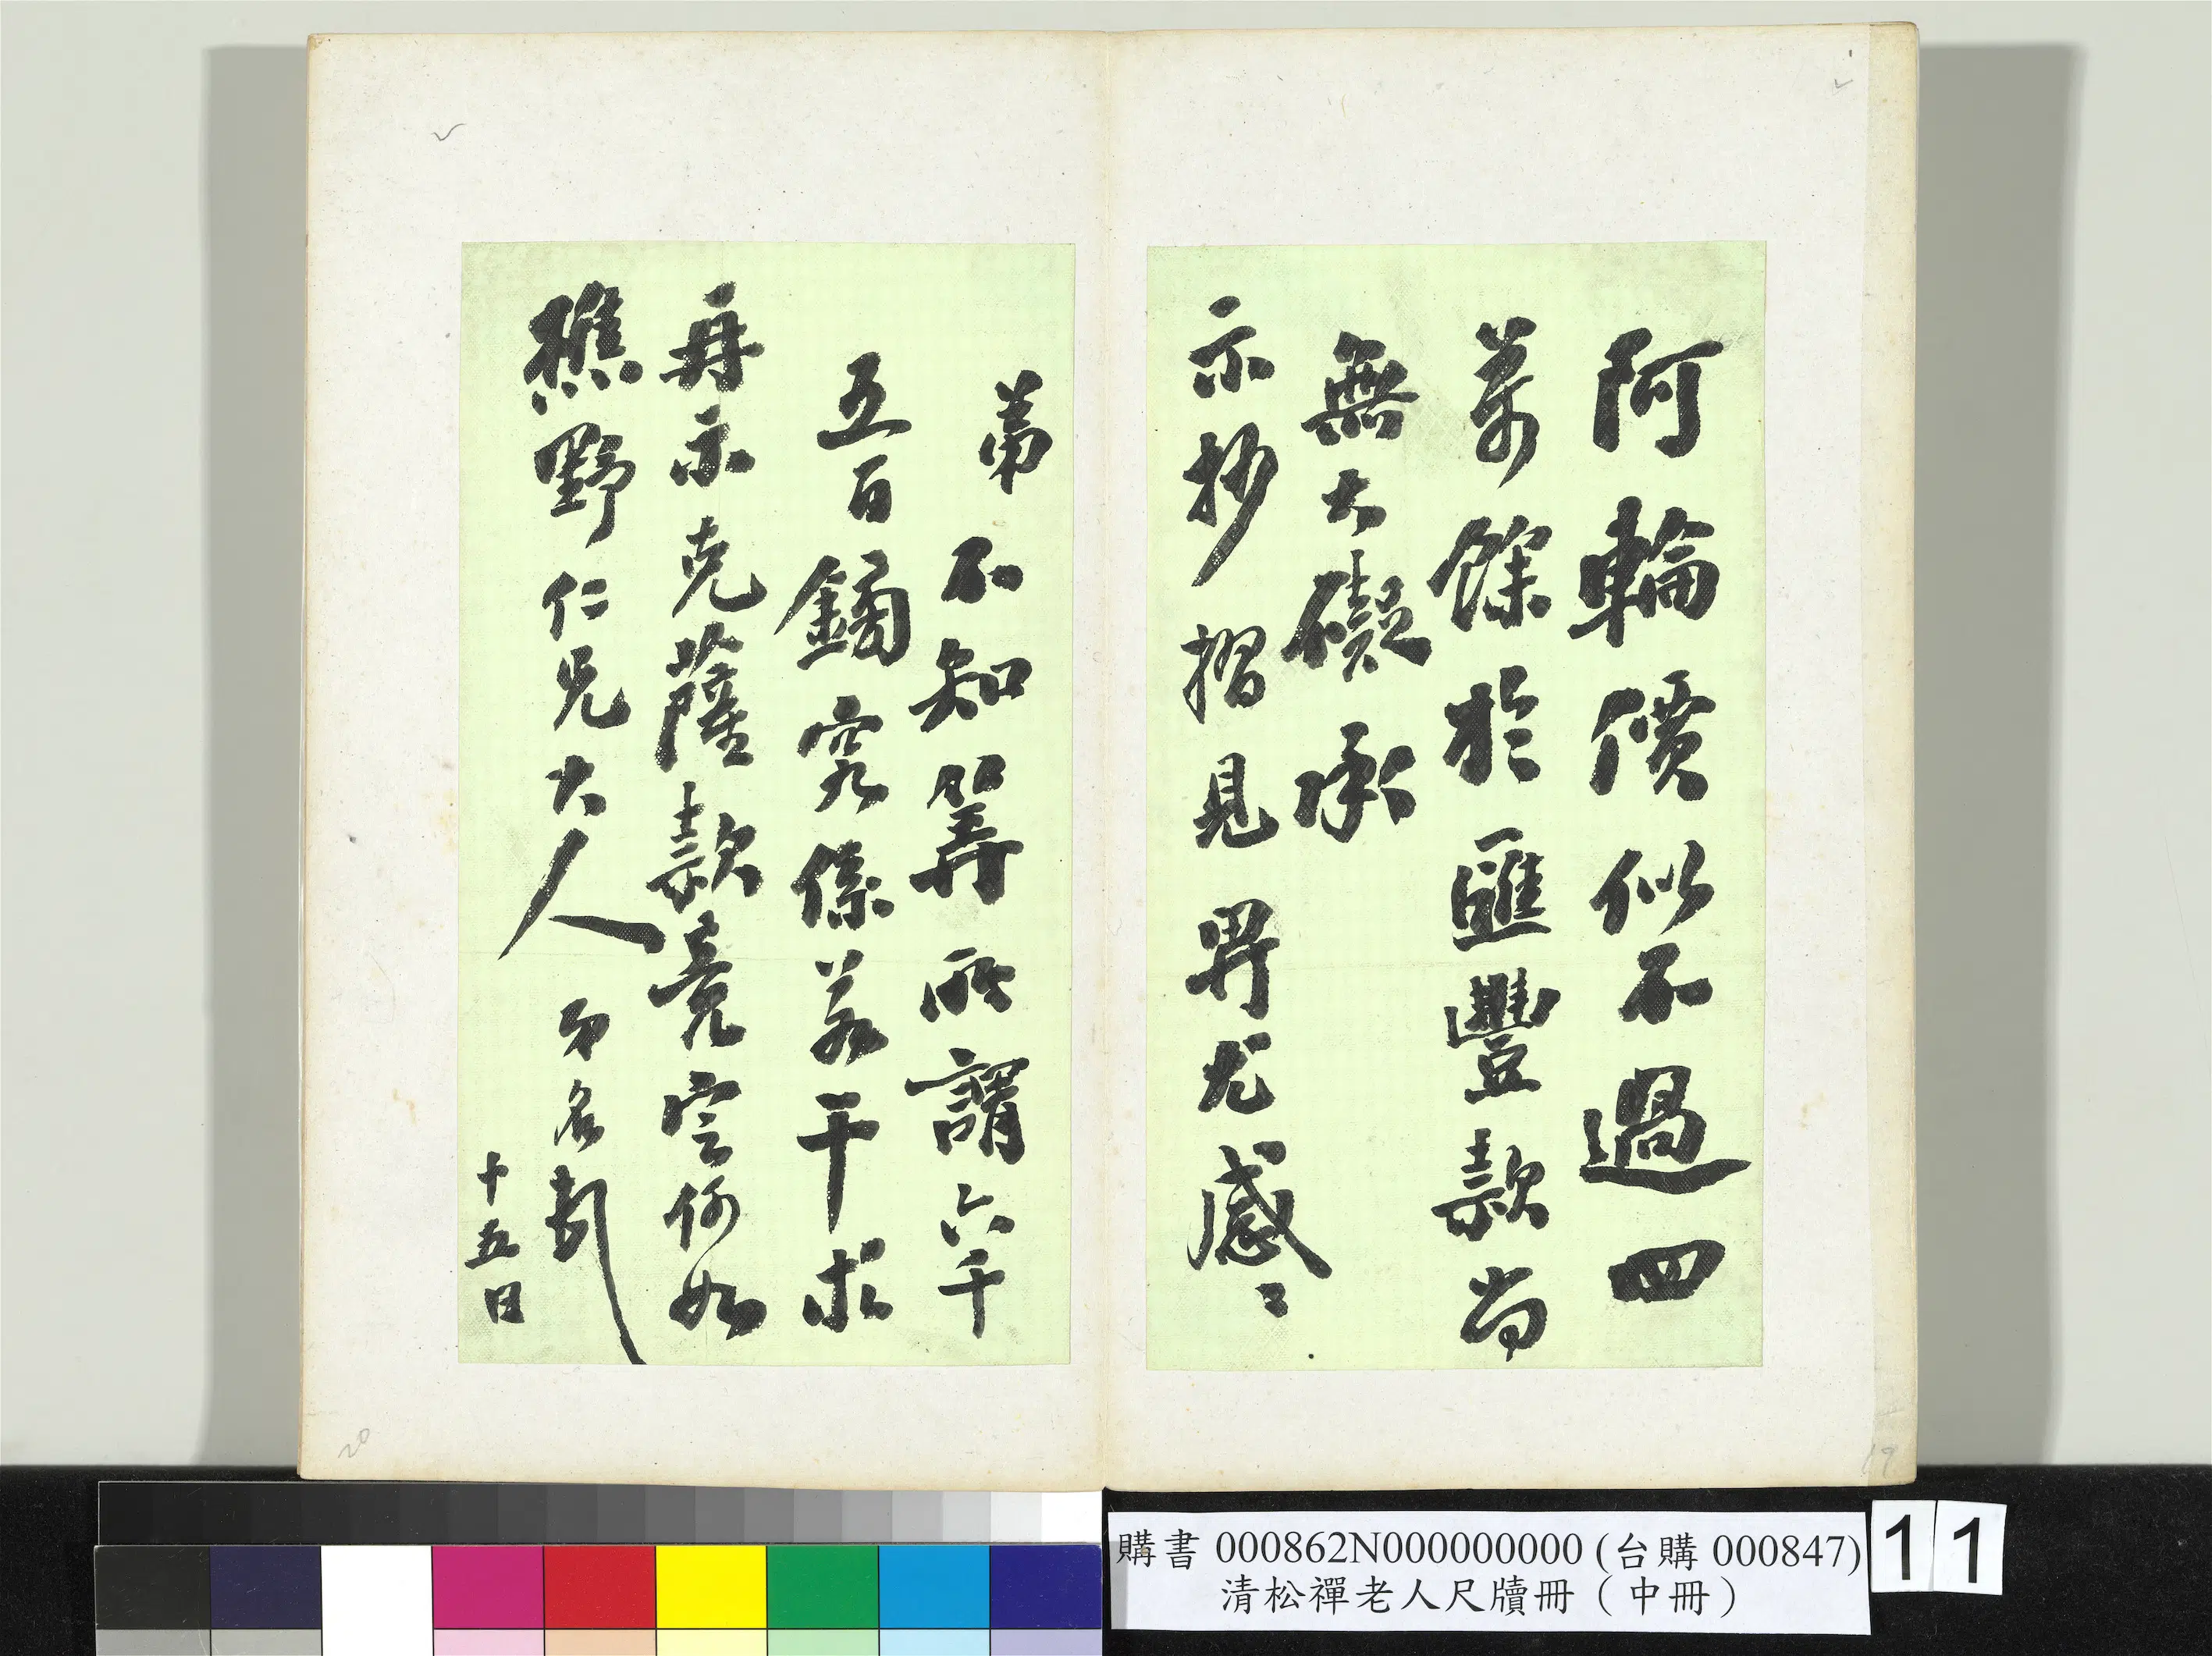 阿輪價似不過四
萬餘於匯豐款尚
無大礙承
示抄摺見畀尤感〻
弟
不知籌所謂六千
五百鏑究係若干求
再示克薩款竟空何如
樵野仁兄大人
名
十五日
20
19
購書 000862N000000000 (台購 000847)
清松禪老人尺牘冊（中冊）
11